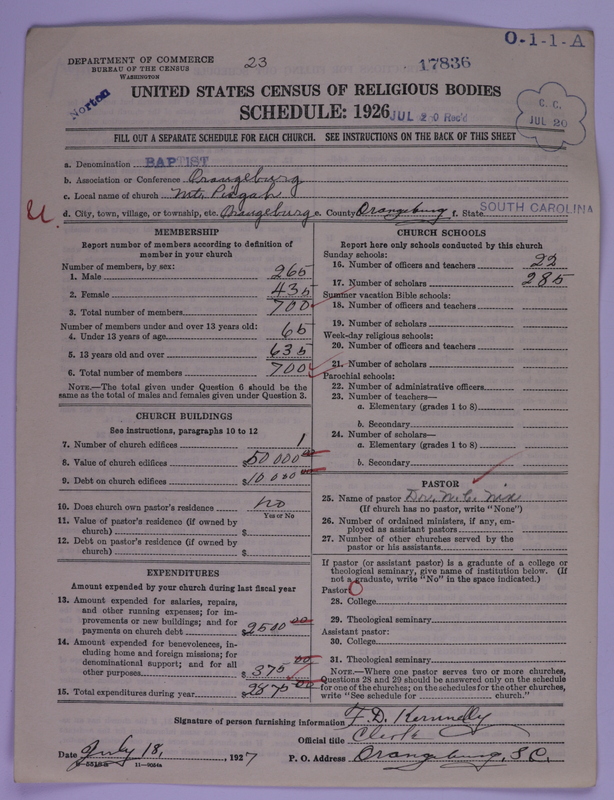 O-1-1-A
DEPARTMENT OF COMMERCE
BUREAU OF THE CENSUS
WASHINGTON
23
17836
Norton
UNITED STATES CENSUS OF RELIGIOUS BODIES
SCHEDULE: 1926
JUL 20 Rec'd
C. C.
JUL 20
FILL OUT A SEPARATE SCHEDULE FOR EACH CHURCH. SEE INSTRUCTIONS ON THE BACK OF THIS SHEET
a. Denomination BAPTIST
b. Association or Conference Orangeburg
c. Local name of church Mt. Pisgah
d. City, town, village, or township, etc. Orangeburg e. County Orangeburg f. State SOUTH CAROLINA
MEMBERSHIP
Report number of members according to definition of
member in your church
Number of members, by sex:
1. Male 265
2. Female 435
3. Total number of members 700
Number of members under and over 13 years old:
4. Under 13 years of age 65
5. 13 years old and over 635
6. Total number of members 700
NOTE.—The total given under Question 6 should be the
same as the total of males and females given under Question 3.
CHURCH BUILDINGS
See instructions, paragraphs 10 to 12
7. Number of church edifices 1
8. Value of church edifices $50 000 00
9. Debt on church edifices $10 000 00
10. Does church own pastor's residence no
Yes or No
11. Value of pastor's residence (if owned by
church) $
12. Debt on pastor's residence (if owned by
church) $
EXPENDITURES
Amount expended by your church during last fiscal year
13. Amount expended for salaries, repairs,
and other running expenses; for im-
provements or new buildings; and for
payments on church debt $2500 00
14. Amount expended for benevolences, in-
cluding home and foreign missions; for
denominational support; and for all
other purposes $375 00
15. Total expenditures during year $2875 00
CHURCH SCHOOLS
Report here only schools conducted by this church
Sunday schools:
16. Number of officers and teachers 22
17. Number of scholars 285
Summer vacation Bible schools:
18. Number of officers and teachers
19. Number of scholars
Week-day religious schools:
20. Number of officers and teachers
21. Number of scholars
Parochial schools:
22. Number of administrative officers
23. Number of teachers—
a. Elementary (grades 1 to 8)
b. Secondary
24. Number of scholars—
a. Elementary (grades 1 to 8)
b. Secondary
PASTOR
25. Name of pastor Dr. N.C. Nix
(If church has no pastor, write "None")
26. Number of ordained ministers, if any, em-
ployed as assistant pastors
27. Number of other churches served by the
pastor or his assistants
If pastor (or assistant pastor) is a graduate of a college or
theological seminary, give name of institution below. (If
not a graduate, write "No" in the space indicated.)
Pastor: O
28. College
29. Theological seminary
Assistant pastor:
30. College
31. Theological seminary
NOTE.—Where one pastor serves two or more churches,
Questions 28 and 29 should be answered only on the schedule
for one of the churches; on the schedules for the other churches,
write "See schedule for church."
Signature of person furnishing information F. D. Kennedy
Official title Clerk
Date July 18, 1927 P. O. Address Orangeburg, S.C.